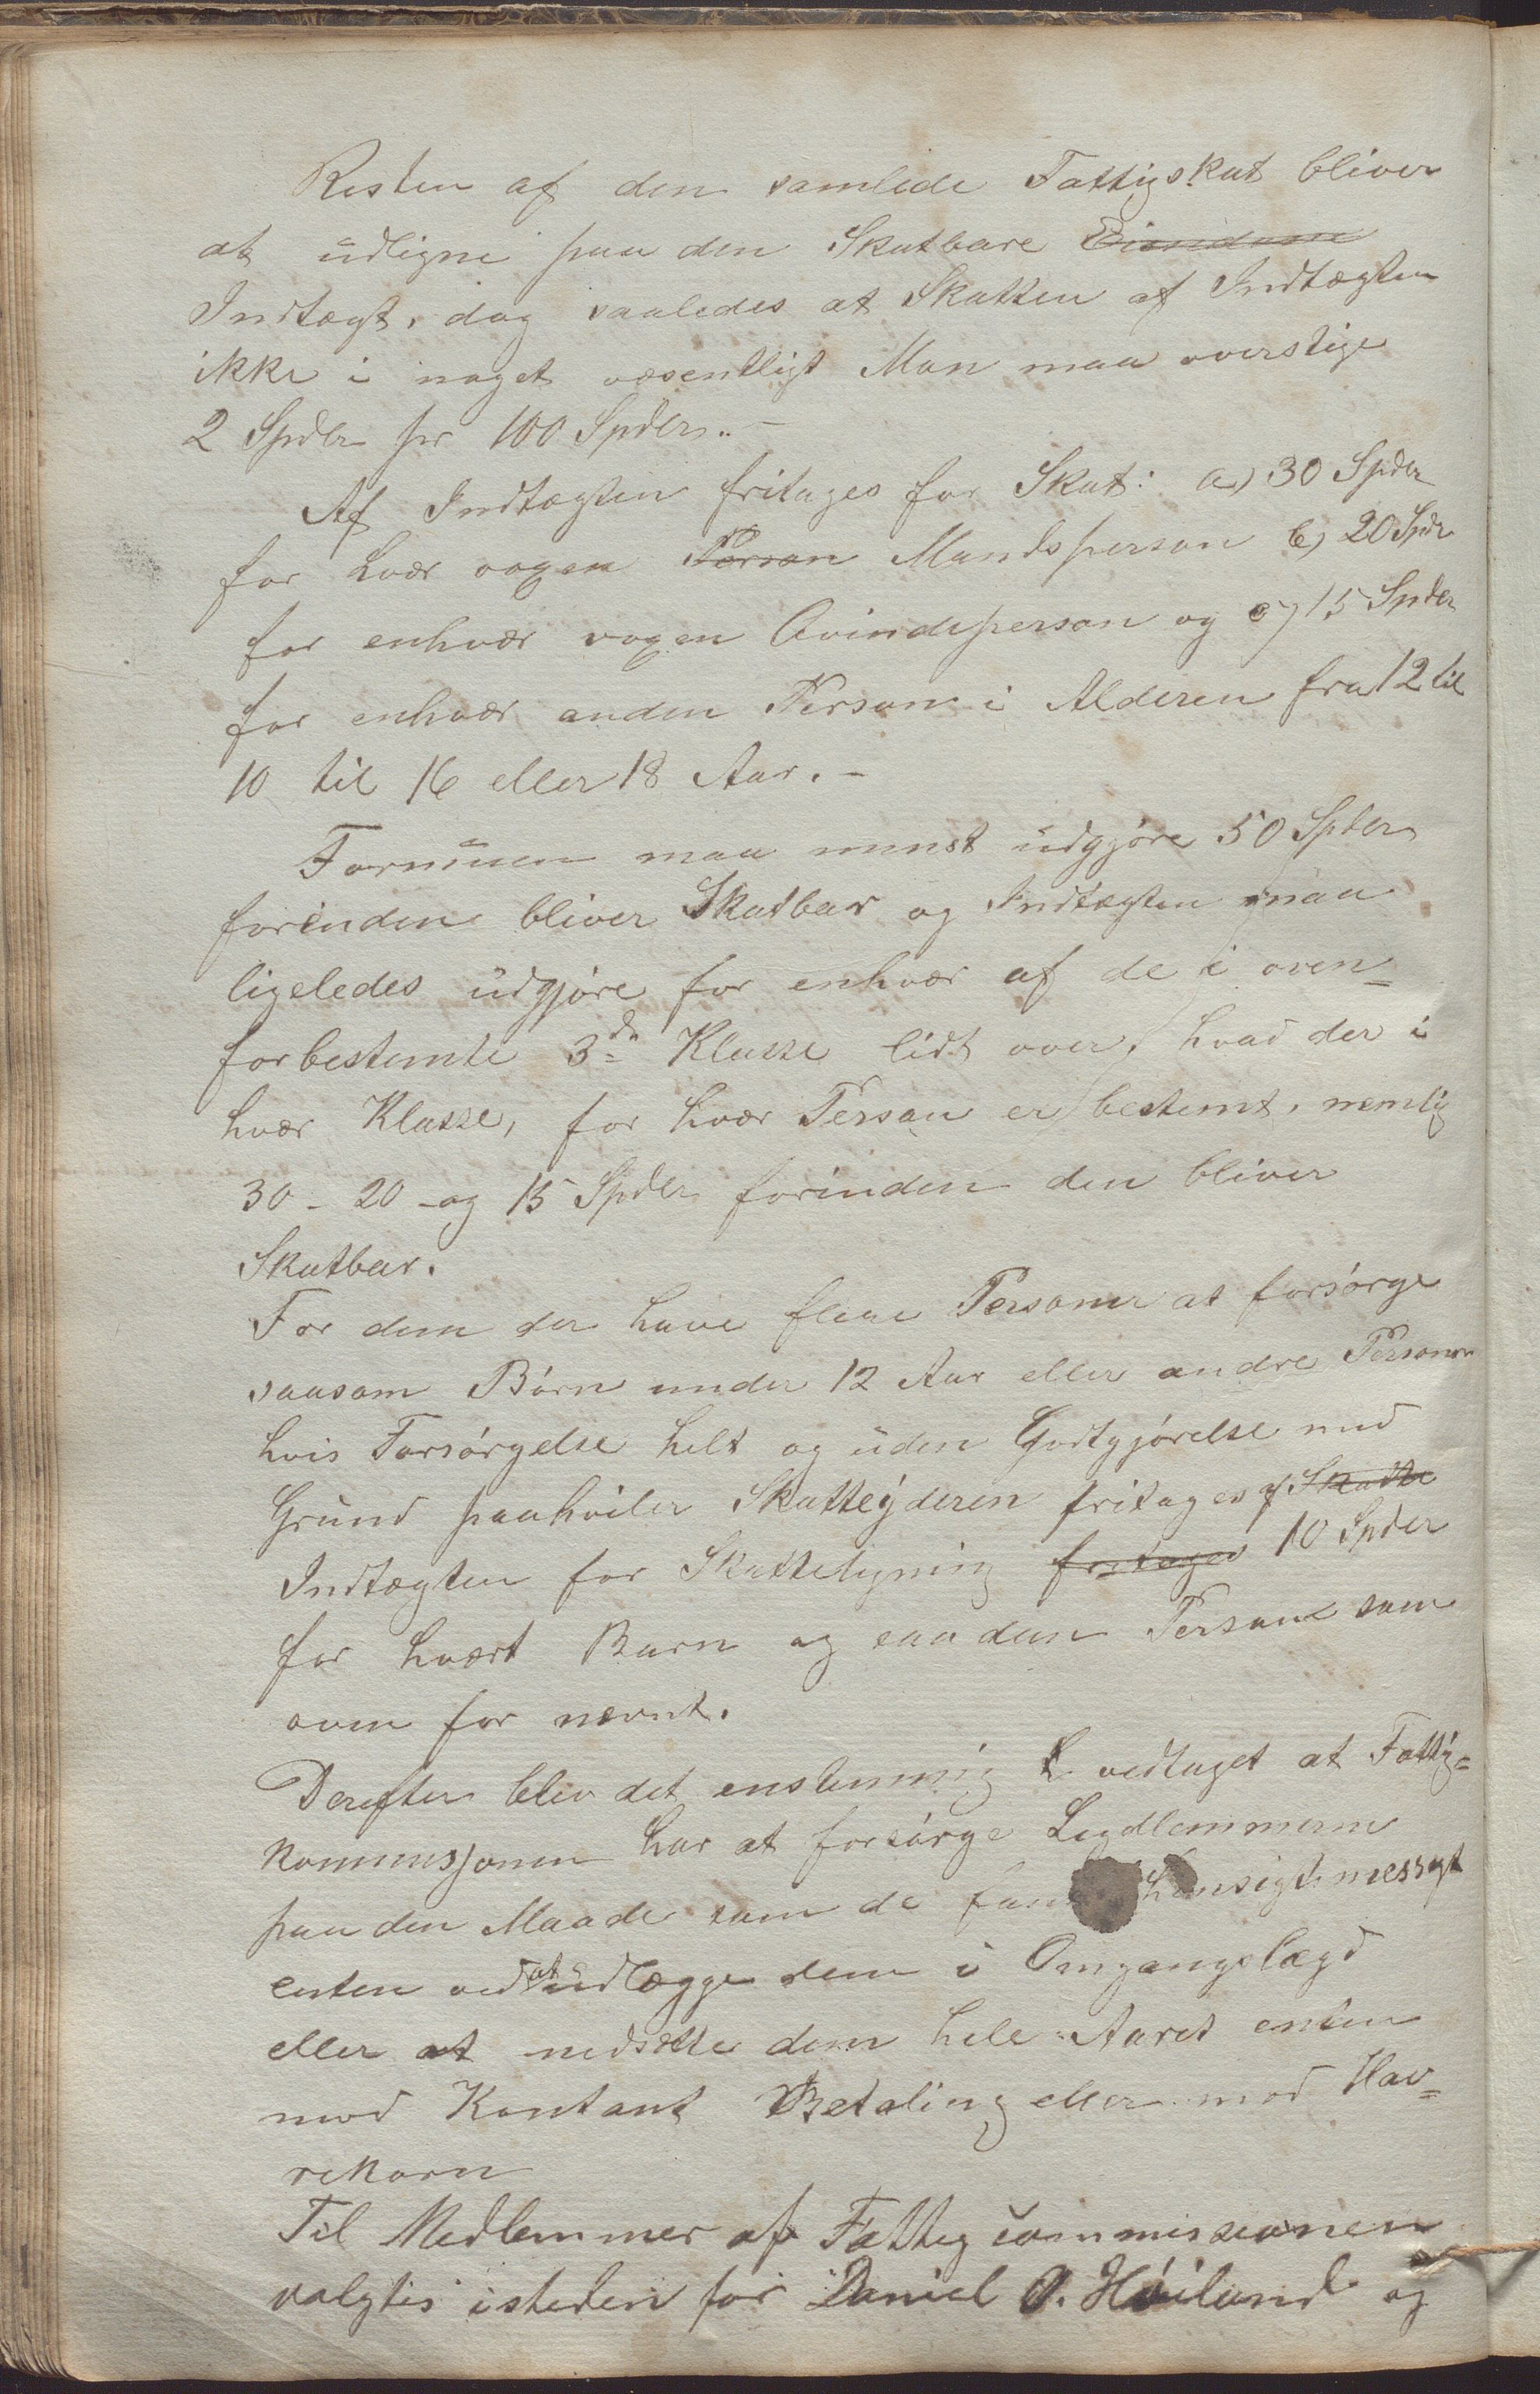 Resten af den samlede Fattigskat bliver
at udligne paa den Skatbare Eiendom
Indtægt, dog saaledes at Skatten af Indtægten
ikke i noget væsentligt Mon maa overstige
2 Spdlr pr 100 Spdlr. –
Af Indtægten fritages for Skat: a) 30 Spdlr
for hvær voxen Person Mandsperson b) 20 Spdlr
for enhvær voxen Qvindeperson og c) 15 Spdlr
for enhvær anden Person i Alderen fra 12 til
10 til 16 eller 18 Aar. –
Formuen maa minst udgjøre 50 Spdlr
forinden bliver Skatbar og Indtægten maa
ligeledes udgjøre for enhvær af de i oven=
forbestemte 3de Klasse lidt over, hvad der i
hvær Klasse, for hvær Person er bestemt, nemlig
30 - 20 - og 15 Spdlr forinden den bliver
Skatbar.
For dem der have flere Personer at forsørge
saasom Børn under 12 Aar eller andre Personer
hvis Forsørgelse helt og uden Godtgjørelse med
Grund paahviler Skatteyderen fritages af Skatte
Indtægten for Skatteligning fritages 10 Spdlr
for hvært Barn og saadan Person som
oven for nævnt.
Derefter blev det enstemmig vedtaget at Fattig=
kommissjonen har at forsørge Legdlemmerne
paa den Maade som de hensigtsmessigt
enten ved at udlægge dem i Omgangslægd
eller at nedsætte dem hele Aaret enten
mod Kontant Betaling eller mod Hav=
rekorn
Til Medlemmer af Fattigcommissionen
valgtes isteden for Daniel O. Høiland og